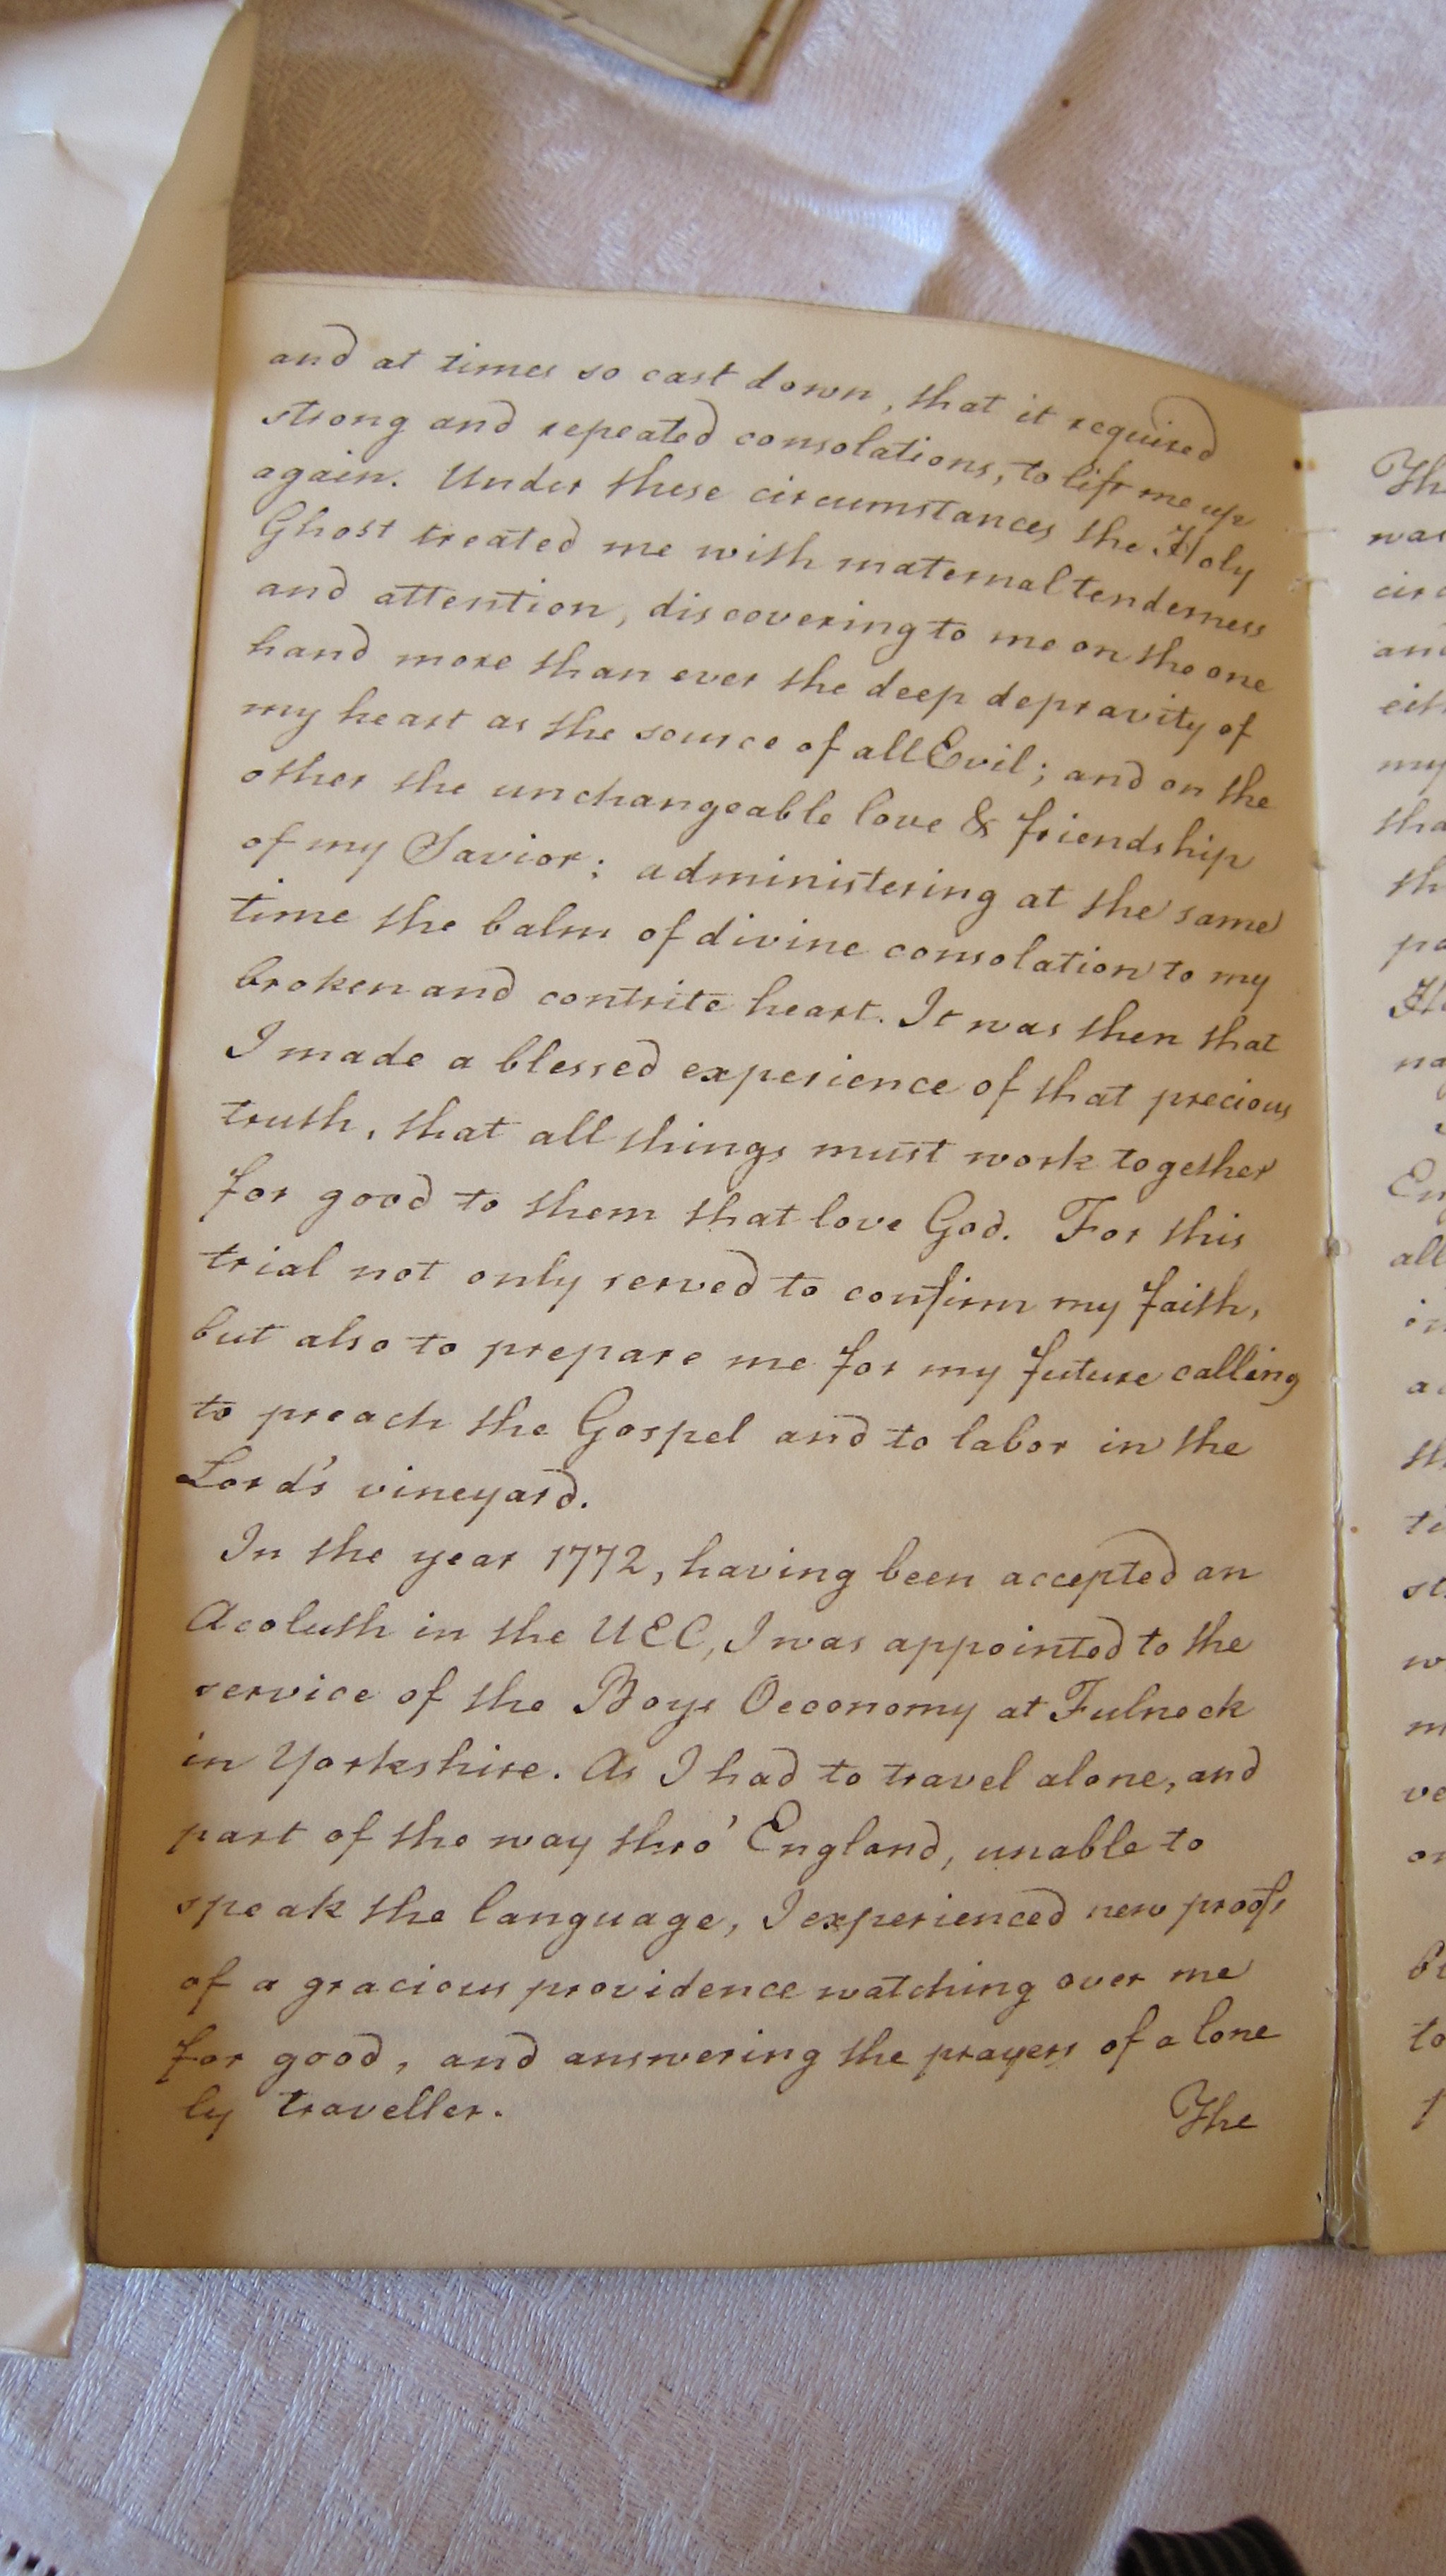 and at times so cast down, that it required
strong and repeated consolations, to lift me up
again. Under these circumstances the Holy
Ghost treated me with maternal tenderness
and attention, discovering to me on the one
hand more than ever the deep depravity of
my heart as the source of all Evil; and on the
other the unchangeable love & friendship
of my Savior; administering at the same
time the balm of divine consolation to my
broken and contrite heart. It was then that
I made a blessed experience of that precious
truth, that all things must work together
for good to them that love God. For this
trial not only served to confirm my faith,
but also to prepare me for my future calling
to preach the Gospel and to labor in the
Lord's vineyard.
In the year 1772, having been accepted an
Acoluth in the UEC, I was appointed to the
service of the Boys Oeconomy at Fulneck
in Yorkshire. As I had to travel alone, and
part of the way thro' England, unable to
speak the language, I experienced new proofs
of a gracious providence watching over me
for good, and answering the prayers of a lone
ly traveller.
The
was
and